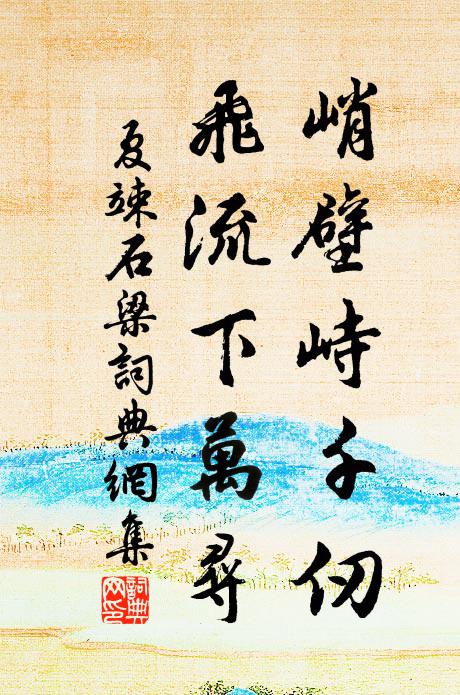 峭壁峙千仞
飛流下萬尋
夏竦石梁詞典網集
詞典網印